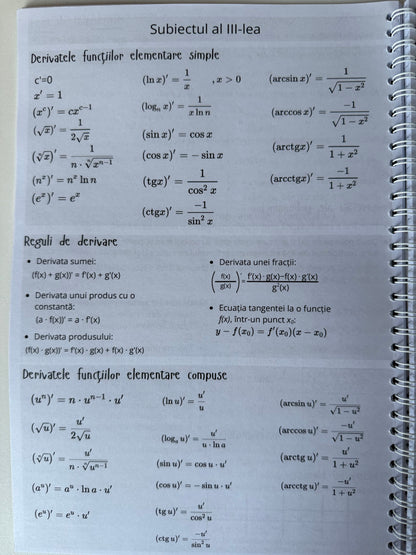 Subiectul al III-lea
Derivatele funcțiilor elementare simple
c'=0
x' = 1
(x^c)' = cx^{c-1}
(√x)' = 1/(2√x)
(ⁿ√x)' = 1/(n · ⁿ√(x^{n-1}))
(n^x)' = n^x ln n
(e^x)' = e^x
(ln x)' = 1/x , x > 0
(log_n x)' = 1/(x ln n)
(sin x)' = cos x
(cos x)' = − sin x
(tgx)' = 1/(cos² x)
(ctgx)' = −1/(sin² x)
(arcsin x)' = 1/√(1 − x²)
(arccos x)' = −1/√(1 − x²)
(arctgx)' = 1/(1 + x²)
(arcctgx)' = −1/(1 + x²)
Reguli de derivare
• Derivata sumei:
(f(x) + g(x))' = f'(x) + g'(x)
• Derivata unui produs cu o
constantă:
(a · f(x))' = a · f'(x)
• Derivata produsului:
(f(x) · g(x))' = f'(x) · g(x) + f(x) · g'(x)
• Derivata unei fracții:
(f(x)/g(x))' = (f'(x) · g(x)−f(x) · g'(x))/g²(x)
• Ecuația tangentei la o funcție
f(x), într-un punct x₀:
y − f(x₀) = f'(x₀)(x − x₀)
Derivatele funcțiilor elementare compuse
(u^n)' = n · u^{n-1} · u'
(√u)' = u'/(2√u)
(ⁿ√u)' = u'/(n · ⁿ√(u^{n-1}))
(a^u)' = a^u · ln a · u'
(e^u)' = e^u · u'
(ln u)' = u'/u
(log_a u)' = u'/(u · ln a)
(sin u)' = cos u · u'
(cos u)' = − sin u · u'
(tg u)' = u'/(cos² u)
(ctg u)' = −u'/(sin² u)
(arcsin u)' = u'/√(1 − u²)
(arccos u)' = −u'/√(1 − u²)
(arctg u)' = u'/(1 + u²)
(arcctg u)' = −u'/(1 + u²)